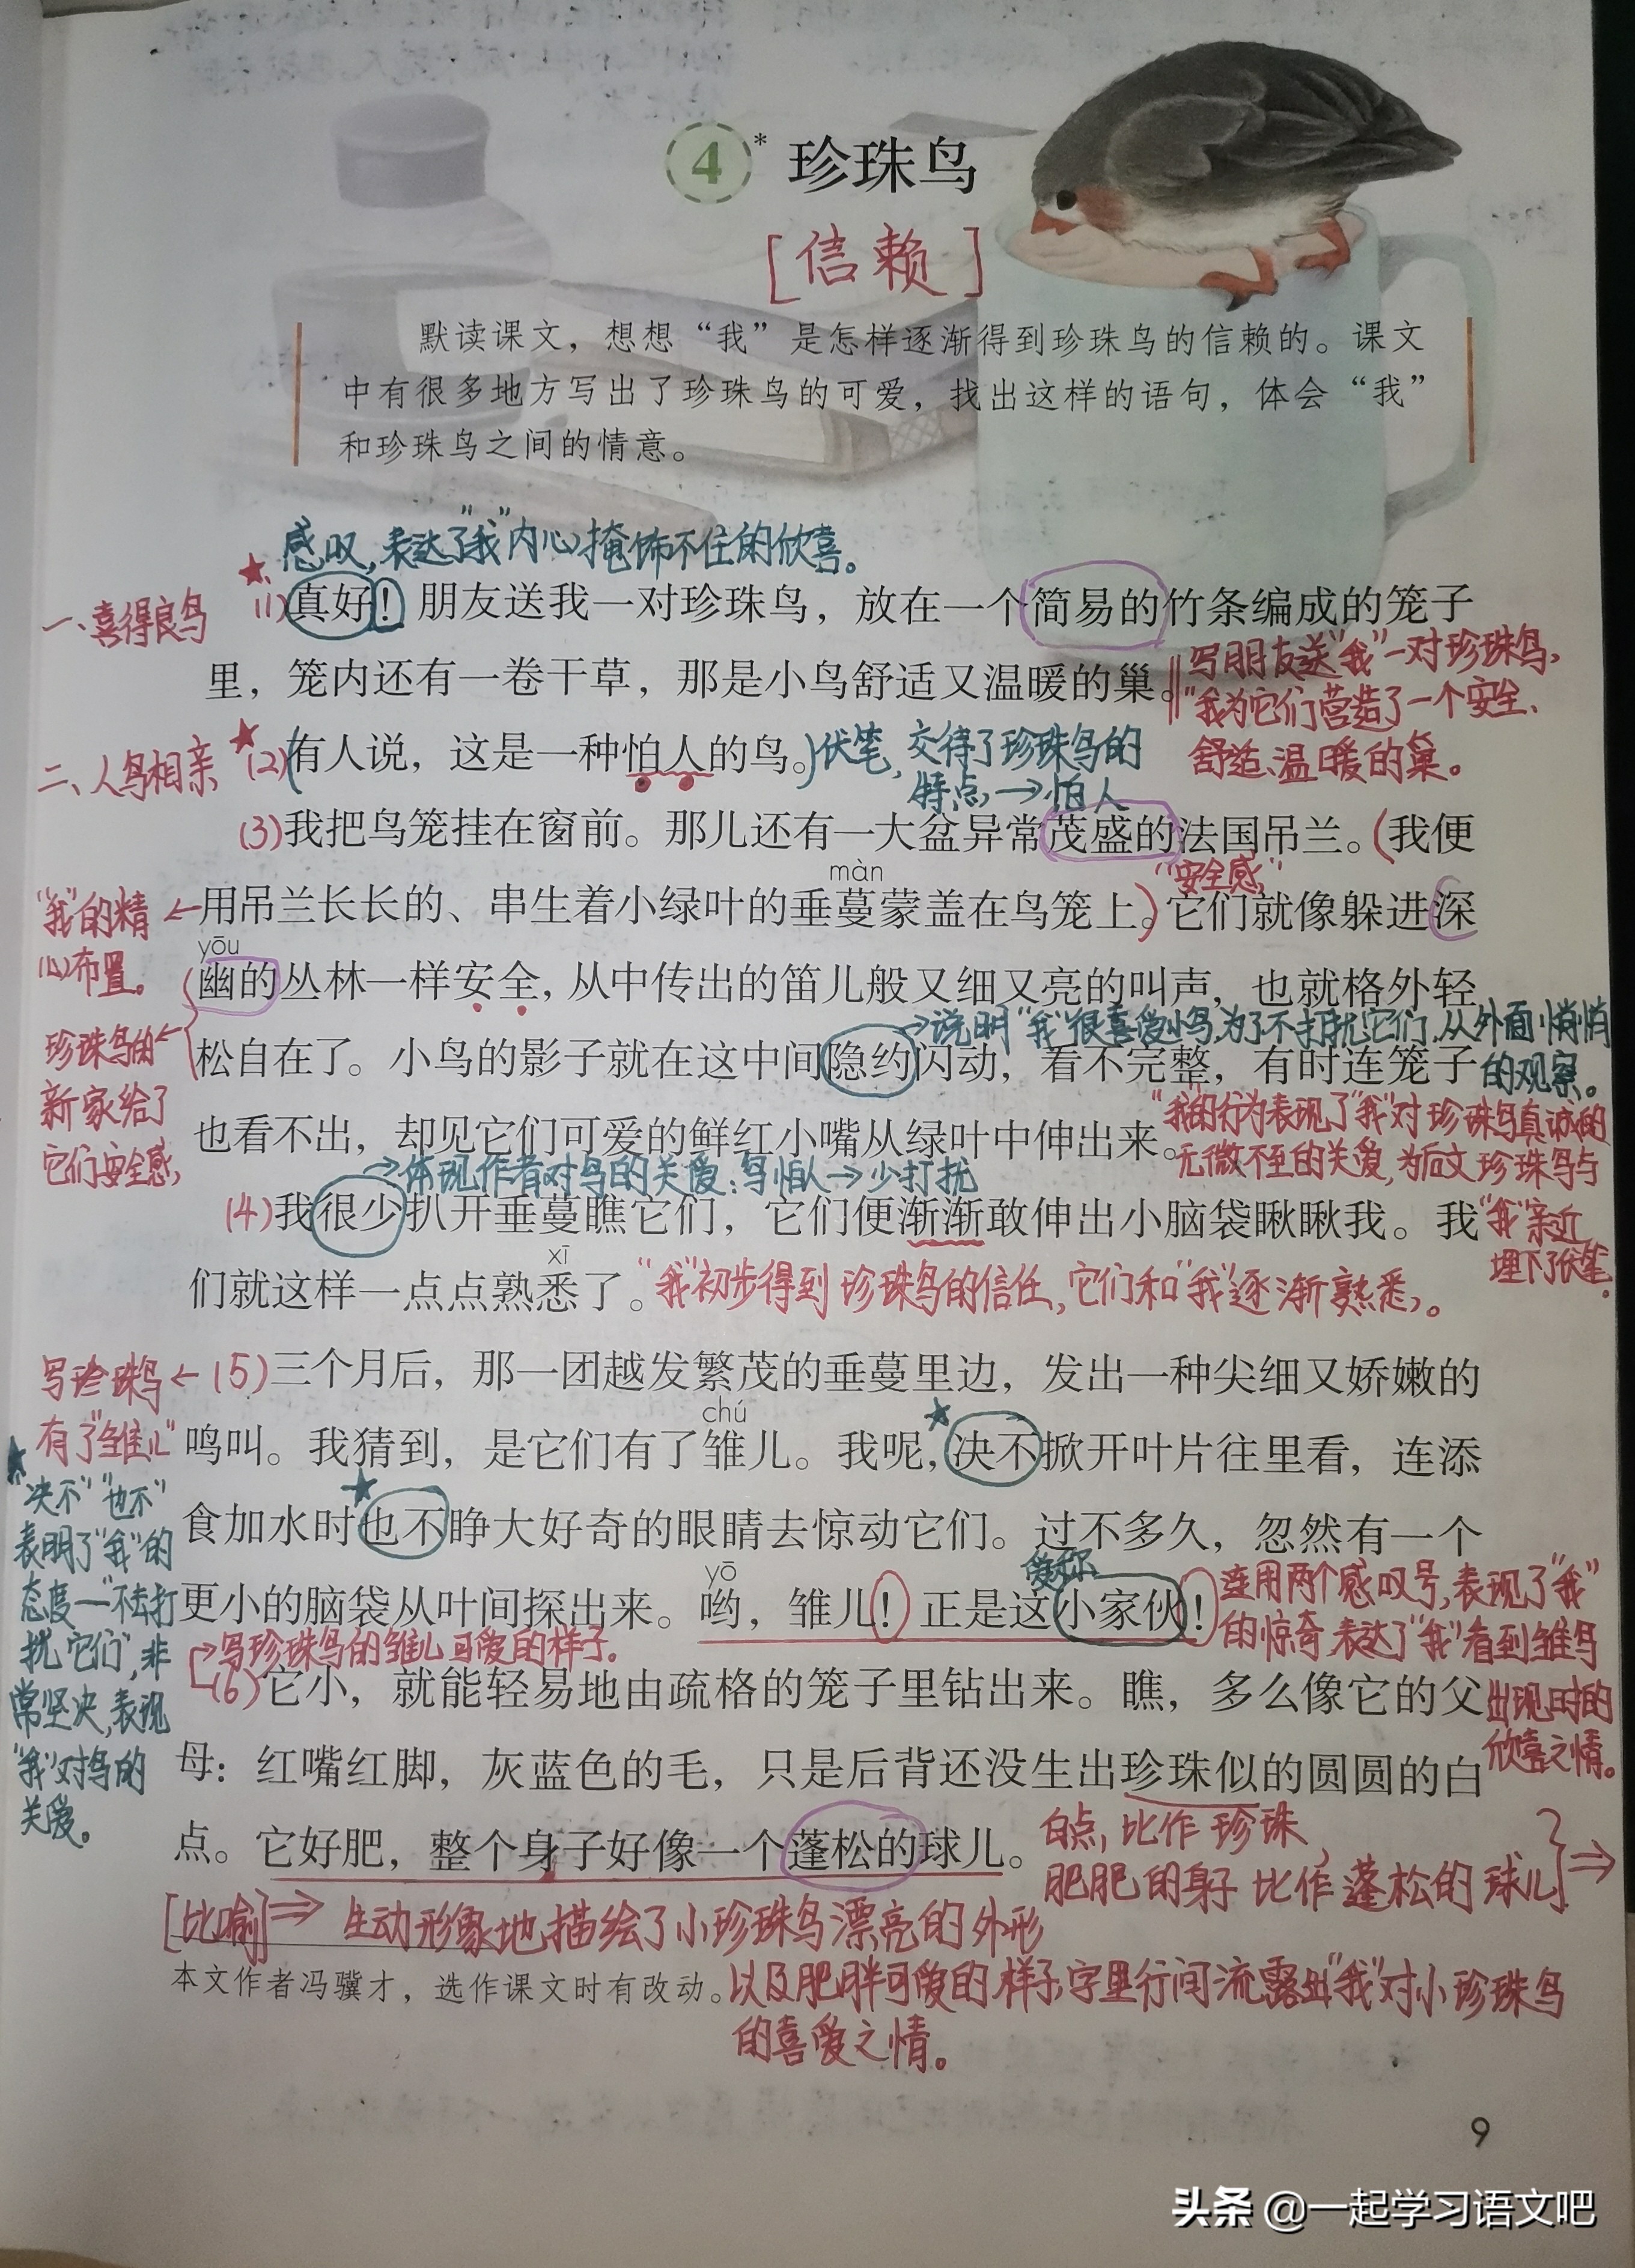 4* 珍珠鸟
[信赖]
默读课文，想想“我”是怎样逐渐得到珍珠鸟的信赖的。课文
中有很多地方写出了珍珠鸟的可爱，找出这样的语句，体会“我”
和珍珠鸟之间的情意。
感叹，表达了“我”内心掩饰不住的欣喜。
一、喜得良鸟
(1)真好！朋友送我一对珍珠鸟，放在一个简易的竹条编成的笼子
里，笼内还有一卷干草，那是小鸟舒适又温暖的巢。
写朋友送“我”一对珍珠鸟，
“我为它们营造了一个安全、
舒适、温暖的巢。
二、人鸟相亲
(2)(有人说，这是一种怕人的鸟。)
伏笔，交待了珍珠鸟的
特点→怕人
(3)我把鸟笼挂在窗前。那儿还有一大盆异常茂盛的法国吊兰。(我便
màn
“安全感”
用吊兰长长的、串生着小绿叶的垂蔓蒙盖在鸟笼上。)它们就像躲进深
“我”的精
心布置。
yōu
幽的丛林一样安全，从中传出的笛儿般又细又亮的叫声，也就格外轻
→说明“我”很喜爱小鸟，为了不打扰它们，从外面悄悄
的观察。
松自在了。小鸟的影子就在这中间隐约闪动，看不完整，有时连笼子
珍珠鸟的
新家给了
它们安全感，
也看不出，却见它们可爱的鲜红小嘴从绿叶中伸出来。
“我的行为表现了“我”对珍珠鸟真诚的
无微不至的关爱，为后文珍珠鸟与
“我”亲近
埋下了伏笔。
→体现作者对鸟的关爱：鸟怕人→少打扰
(4)我很少扒开垂蔓瞧它们，它们便渐渐敢伸出小脑袋瞅瞅我。我
xī
们就这样一点点熟悉了。
“我”初步得到珍珠鸟的信任，它们和“我”逐渐熟悉，。
写珍珠鸟←
有了“雏儿”
(5)三个月后，那一团越发繁茂的垂蔓里边，发出一种尖细又娇嫩的
chú
鸣叫。我猜到，是它们有了雏儿。我呢，决不掀开叶片往里看，连添
食加水时也不睁大好奇的眼睛去惊动它们。过不多久，忽然有一个
yō
爱称
更小的脑袋从叶间探出来。哟，雏儿！正是这小家伙！
“决不”“也不”
表明了“我”的
态度—“不去打
扰它们”，非
常坚决，表现
“我”对鸟的
关爱。
连用两个感叹号，表现了“我”
的惊奇，表达了“我”看到雏鸟
出现时的
欣喜之情。
→写珍珠鸟的雏儿可爱的样子。
(6)它小，就能轻易地由疏格的笼子里钻出来。瞧，多么像它的父
母：红嘴红脚，灰蓝色的毛，只是后背还没生出珍珠似的圆圆的白
点。它好肥，整个身子好像一个蓬松的球儿。
白点，比作珍珠，
肥肥的身子比作蓬松的球儿}⇒
[比喻]⇒生动形象地描绘了小珍珠鸟漂亮的外形
以及肥胖可爱的样子，字里行间流露出“我”对小珍珠鸟
的喜爱之情。
本文作者冯骥才，选作课文时有改动。
9
头条 @一起学习语文吧